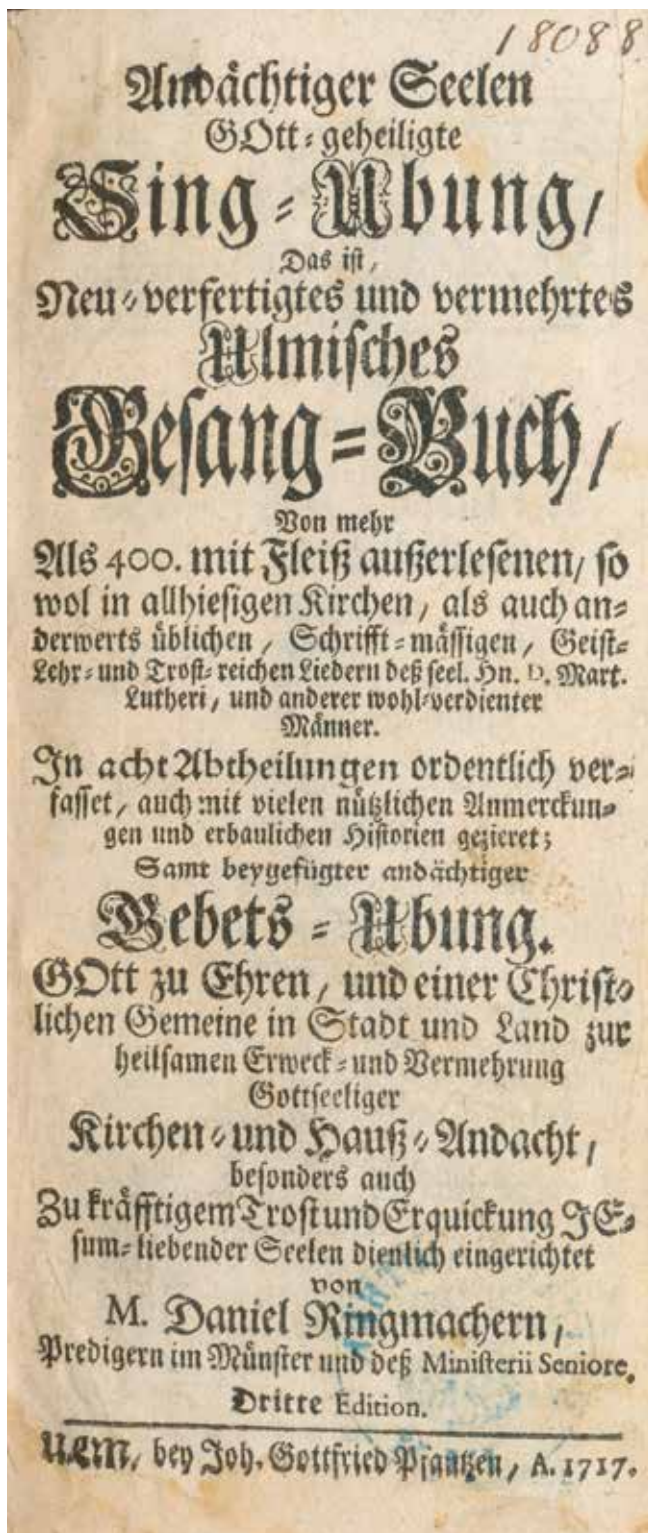 18088
Andächtiger Seelen
GOtt-geheiligte
Sing-Ubung/
Das ist/
Neu-verfertigtes und vermehrtes
Ulmisches
Gesang-Buch/
Von mehr
Als 400. mit Fleiß außerlesenen/ so
wol in allhiesigen Kirchen/ als auch an-
derwerts üblichen/ Schrifft-mässigen/ Geist-
Lehr- und Trost-reichen Liedern deß seel. Hn. D. Mart.
Lutheri/ und anderer wohl-verdienter
Männer.
In acht Abtheilungen ordentlich ver-
fasset/ auch mit vielen nützlichen Anmerckun-
gen und erbaulichen Historien gezieret;
Samt beygefügter andächtiger
Gebets-Ubung.
GOtt zu Ehren/ und einer Christ-
lichen Gemeine in Stadt und Land zur
heilsamen Erweck- und Vermehrung
Gottseeliger
Kirchen- und Hauß-Andacht/
besonders auch
Zu kräfftigem Trost und Erquickung JE-
sum-liebender Seelen dienlich eingerichtet
von
M. Daniel Ringmachern/
Predigern im Münster und deß Ministerii Seniore.
Dritte Edition.
ULM/ bey Joh. Gottfried Pfautzen/ A. 1717.